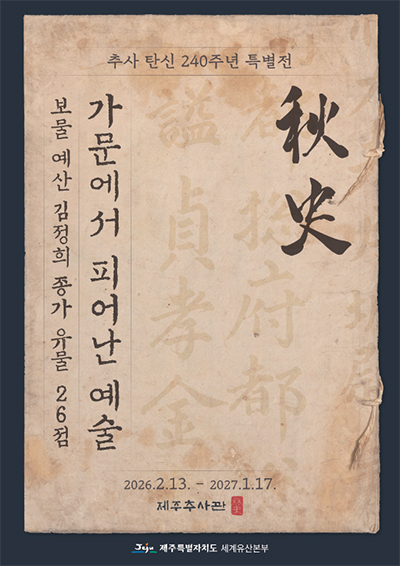 추사 탄신 240주년 특별전
秋史
가문에서 피어난 예술
보물 예산 김정희 종가 유물 26점
諡貞孝金
府都
2026.2.13. - 2027.1.17.
제주추사관
Jeju 제주특별자치도 세계유산본부